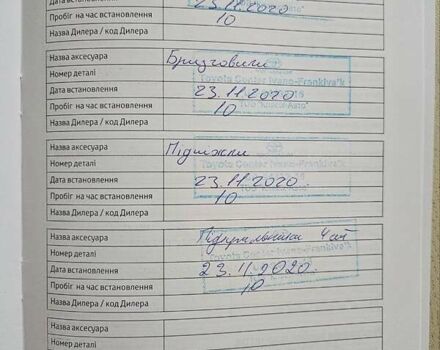 Дата встановлення 23.11.2020
Пробіг на час встановлення 10
Назва Дилера / код Дилера
Назва аксесуара Бризговики
Номер деталі
Toyota Center Ivano-Frankivs'k
Дата встановлення 23.11.2020
Пробіг на час встановлення 10
Назва Дилера / Код Дилера
Назва аксесуара
Номер деталі
Toyota Center Ivano-Frankivs'k
Дата встановлення 23.11.2020.
Пробіг на час встановлення 10
Назва Дилера / Код Дилера
Назва аксесуара
Номер деталі
Toyota Center Ivano-Frankivs'k
Дата встановлення 23.11.2020.
Пробіг на час встановлення 10
Назва Дилера / Код Дилера
Назва аксесуара
Номер деталі